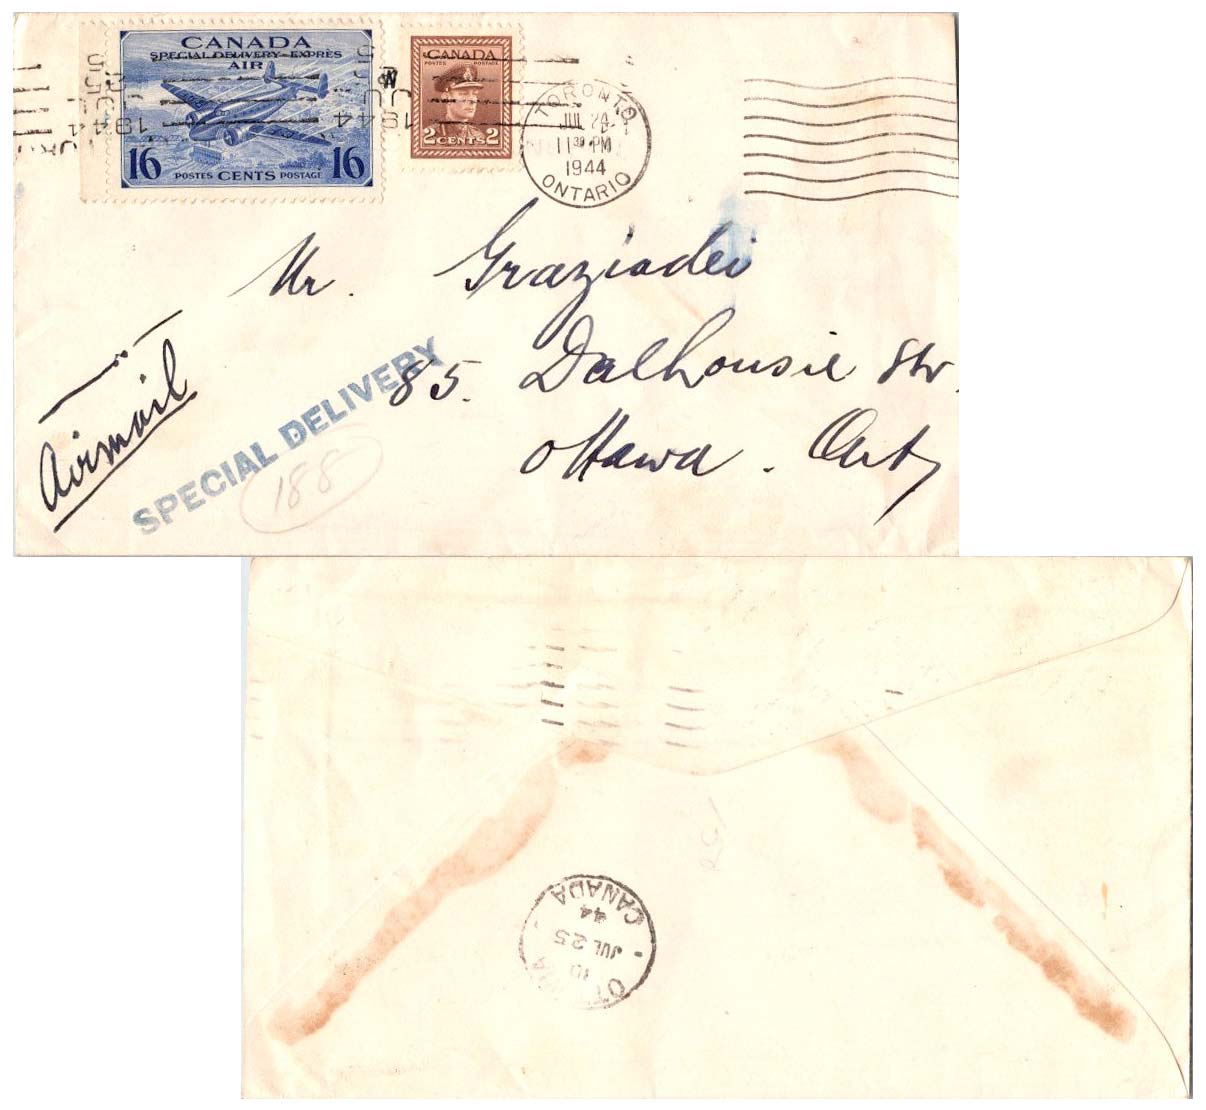 CANADA
SPECIAL DELIVERY-EXPRÈS
AIR
16 16
POSTES CENTS POSTAGE
CANADA
POSTES POSTAGE
2 CENTS 2
1944
1944
TORONTO
JUL 24
11 30 PM
1944
ONTARIO
Mr. Graziadei
85. Dalhousie Str.
Ottawa. Ont,
Airmail
SPECIAL DELIVERY
188
OTTAWA
10
JUL 25
44
CANADA